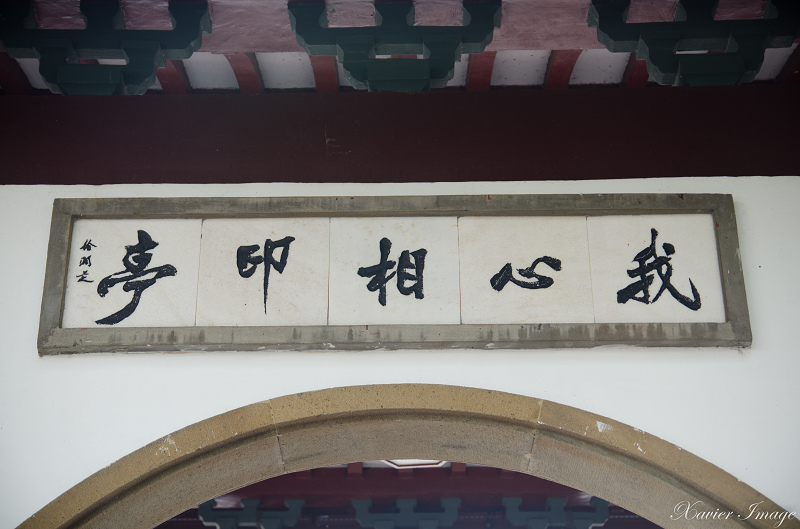 我心相印亭
Xavier Image